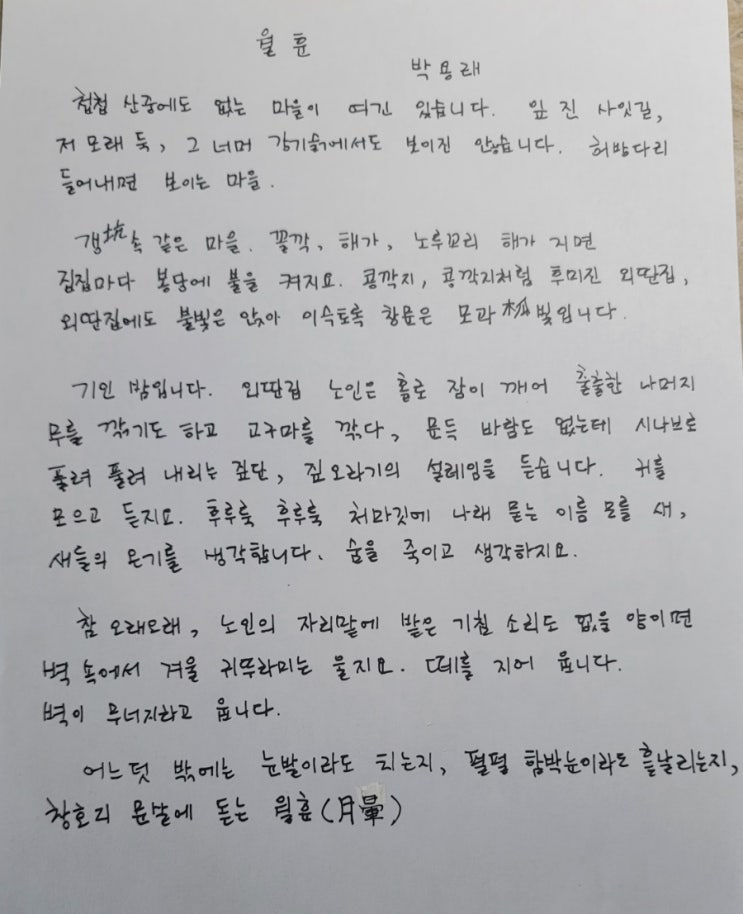 월훈
박용래
첩첩 산중에도 없는 마을이 여긴 있습니다. 잎 진 사잇길,
저 모래 둑, 그 너머 강기슭에서도 보이진 않습니다. 허방다리
들어내면 보이는 마을.
갱坑속 같은 마을. 꼴깍, 해가, 노루꼬리 해가 지면
집집마다 봉당에 불을 켜지요. 콩깍지, 콩깍지처럼 후미진 외딴집,
외딴집에도 불빛은 앉아 이슥토록 창문은 모과빛입니다.
기인 밤입니다. 외딴집 노인은 홀로 잠이 깨어 출출한 나머지
무를 깎기도 하고 고구마를 깎다, 문득 바람도 없는데 시나브로
풀려 풀려 내리는 짚단, 짚오라기의 설레임을 듣습니다. 귀를
모으고 듣지요. 후루룩 후루룩 처마깃에 나래 묻는 이름 모를 새,
새들의 온기를 생각합니다. 숨을 죽이고 생각하지요.
참 오래오래, 노인의 자리맡에 밭은 기침 소리도 없을 양이면
벽 속에서 겨울 귀뚜라미는 울지요. 떼를 지어 웁니다.
벽이 무너지라고 웁니다.
어느덧 밖에는 눈발이라도 치는지, 펄펄 함박눈이라도 흩날리는지,
창호지 문살에 돋는 월훈(月暈)